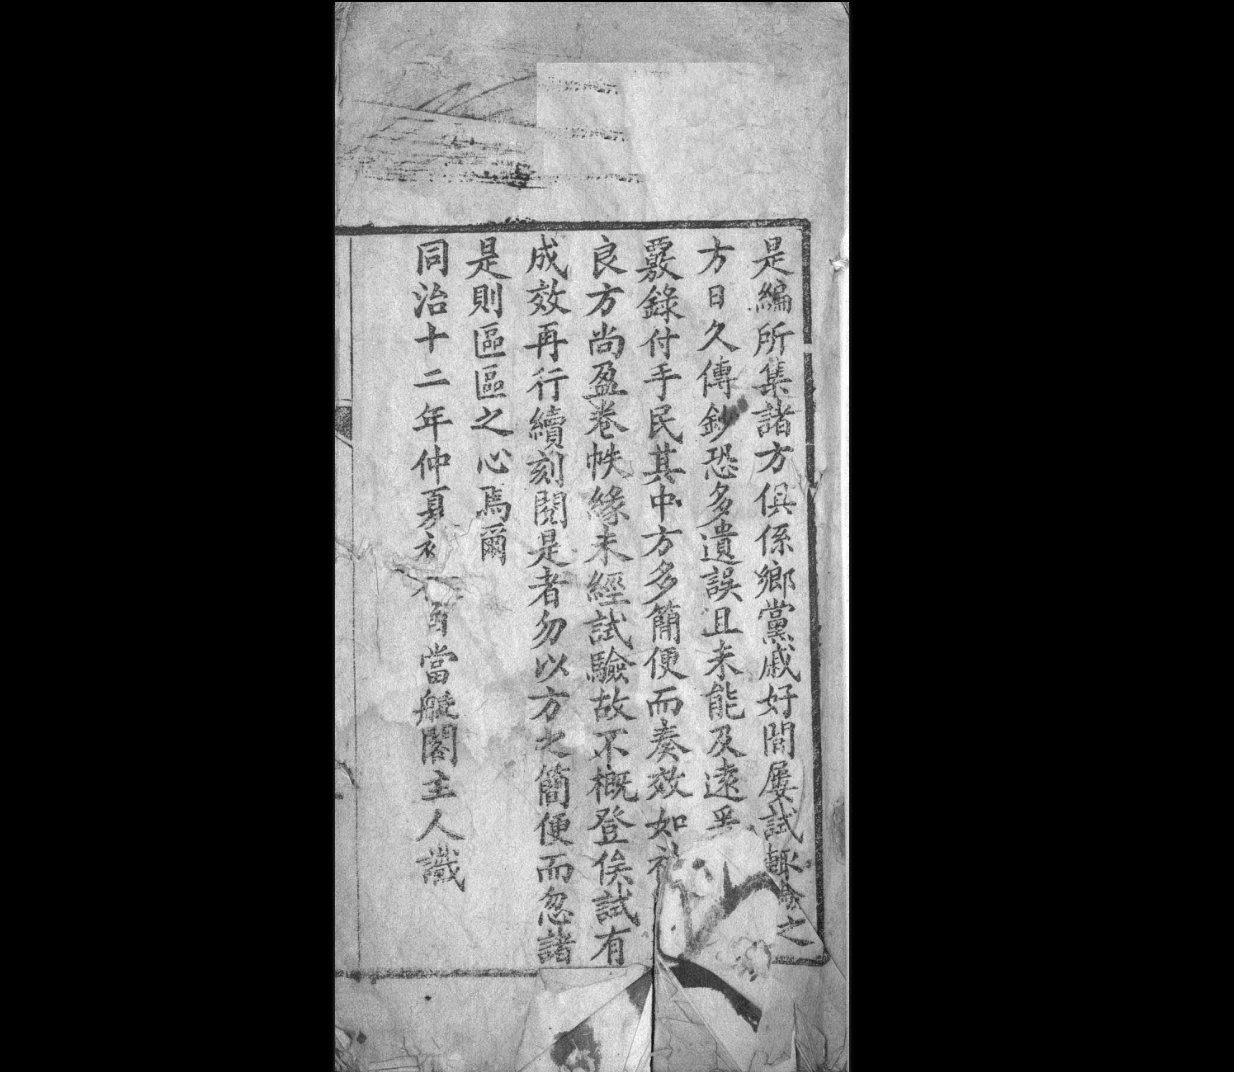 是編所集諸方俱係鄉黨戚好間屢試輙驗之
方日久傳鈔恐多遺誤且未能及遠爰
覈錄付手民其中方多簡便而奏效如神
良方尚盈卷帙緣未經試驗故不概登俟試有
成效再行續刻閱是者勿以方之簡便而忽諸
是則區區之心焉爾
同治十二年仲夏 當艤閣主人識